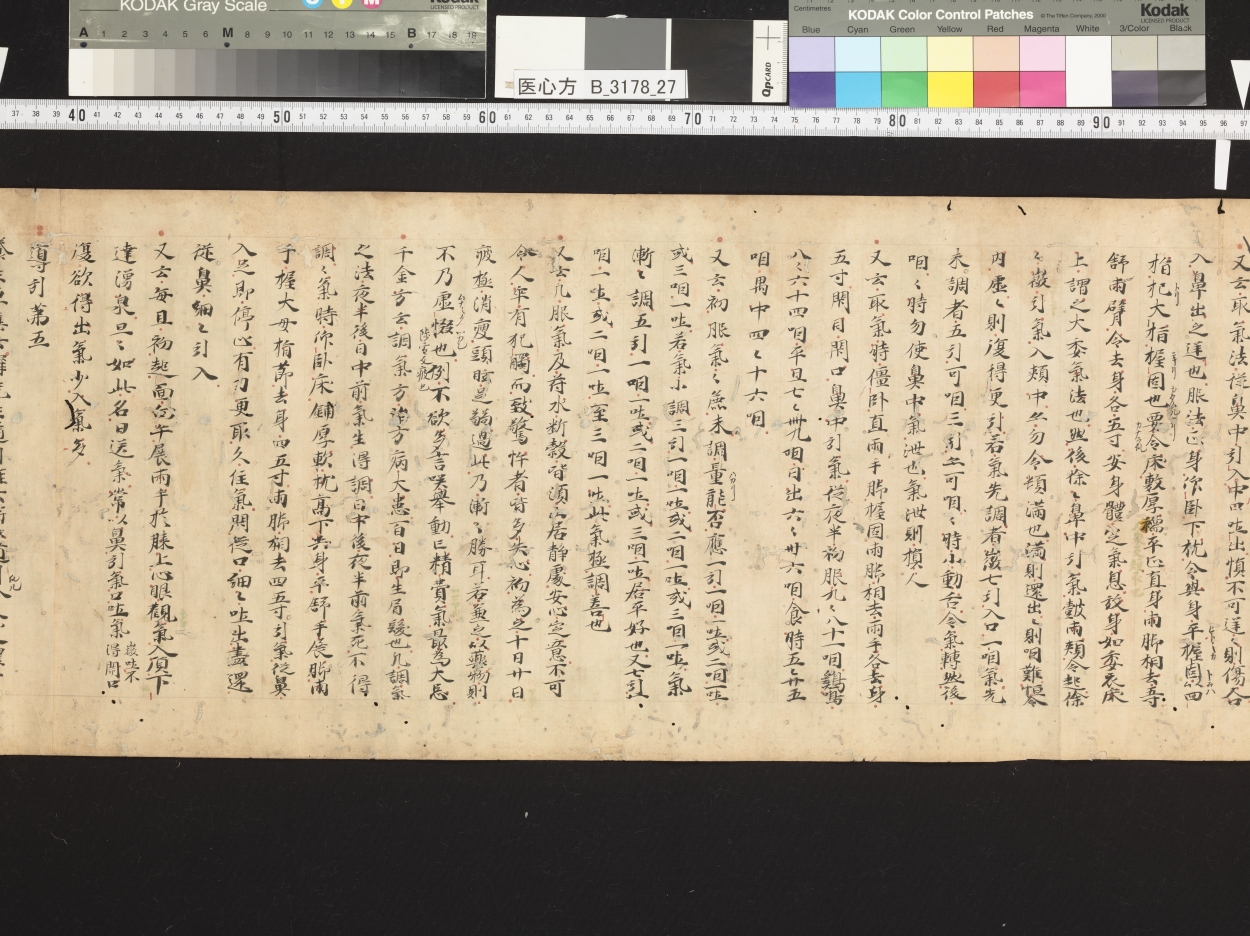 KODAK Gray Scale
Kodak
LICENSED PRODUCT
A 1 2 3 4 5 6 M 8 9 10 11 12 13 14 15 B 17 18 19
医心方 B_3178_27
QPCARD
Centimetres
KODAK Color Control Patches
© The Tiffen Company, 2000
Kodak
LICENSED PRODUCT
Blue Cyan Green Yellow Red Magenta White 3/Color Black
又云取氣法從鼻中引入中四咄出慎不可逆〻則傷人合
入鼻出之逆也服法正身仰臥下枕令與身平握固以四
指把大指握固也要令床敷厚穩平正直身兩腳相去五寸
舒兩臂令去身各五寸安身體定氣息放身如委衣床
上謂之大委氣法也然後徐〻鼻中引氣皷兩頰令起徐
〻微引氣入頰中亦勿令頰滿也滿則還出〻則咽難恒令
內虛〻則復得更引若氣先調者微七引入口一咽氣先
未調者五引可咽三引亦可咽〻時小動舌令氣轉然後
咽〻時勿使鼻中氣泄也氣泄則損人
又云取氣時僵臥直兩手腳握固兩腳相去兩手各去身
五寸閉目閉口鼻中引氣從夜半初服九〻八十一咽鷄鳴
八〻六十四咽平旦七〻卌九咽日出六〻卅六咽食時五〻廿五
咽禺中四〻十六咽
又云初服氣〻麁未調量能否應一引一咽一咄或二咽一咄
或三咽一咄若氣小調三引一咽一咄或二咽一咄或三咽一咄氣
漸〻調五引一咽一咄或二咽一咄或三咽一咄居平好也又七引
咽一咄或二咽一咄至三咽一咄此氣極調善也
又云凡服氣及符水斷穀皆須山居靜處安心定意不可
令人卒有犯觸而致驚忤者皆多失心初為之十日廿日
疲極消瘦頭眩足弱過此乃漸〻勝耳若兼之以藥物則
不乃虛惙也例不欲多言咲舉動亡精費氣最為大忌
千金方云調氣方治方病大患百日即生眉髮也凡調氣
之法夜半後日中前氣生得調日中後夜半前氣死不得
調〻氣時仰臥床鋪厚軟枕高下共身平舒手展腳兩
手握大母指節去身四五寸兩腳相去四五寸引氣從鼻
入足即停止有力更取久住氣悶從口細〻吐出盡還
從鼻細〻引入
又云每旦初起面向午展兩手於膝上心眼觀氣入頂下
達湧泉旦〻如此名曰送氣常以鼻引氣口吐氣
復欲得出氣少入氣多
導引第五